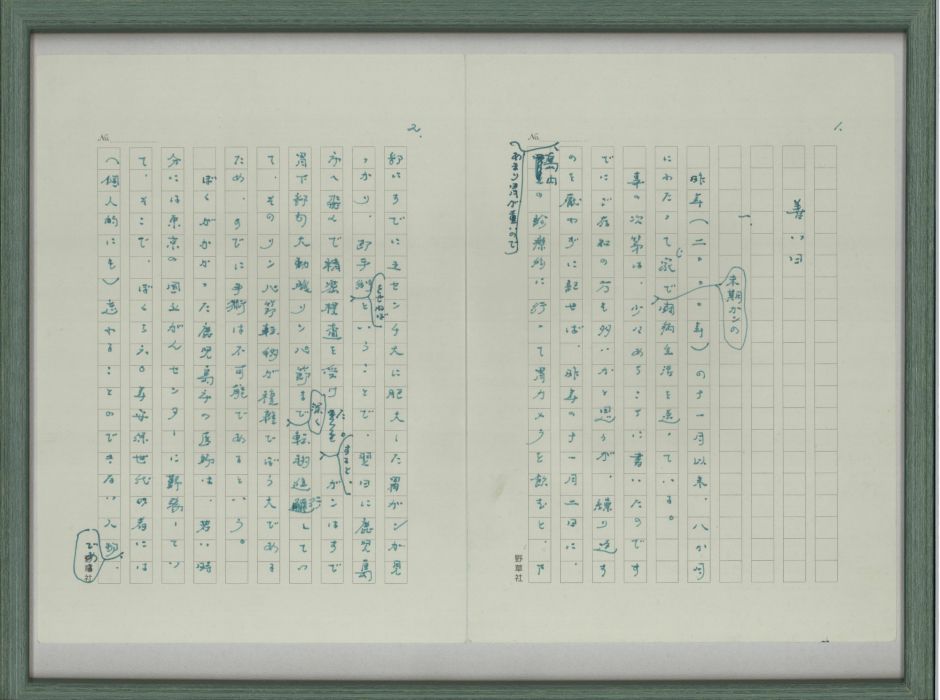 1.
善い日
一.
昨年(二〇〇〇年)の十一月以来、八か月
にわたって家で末期ガンの闘病生活を送っている。
事の次第は、少しはあちこちに書いたのです
でにご存知の方も多いかと思うが、繰り返す
のを厭わずに記せば、昨年の十一月二日に、
あまり胃が重いので
島内の診療所に行って胃カメラを飲むと、
No.
野草社
2.
部にすでに五センチ大に肥大した胃ガンが見
つかり、即手術をせねばということで、翌日に鹿児島
市へ飛んで精密検査を受けた。すると、ガンはすで
に胃下部旁大動脈リンパ節まで深く転移進離してい
て、そのリンパ節転移が種々ひぼう大である
ため、すでに手術は不可能であるという。
ぼくがかかった鹿児島市の医師は、若い時
分には東京の国立がんセンターに勤務してい
て、そこで、ぼくら六〇年安保世代の者には
(個人的にも)忘れることのできない人物、
であ
No.
野草社